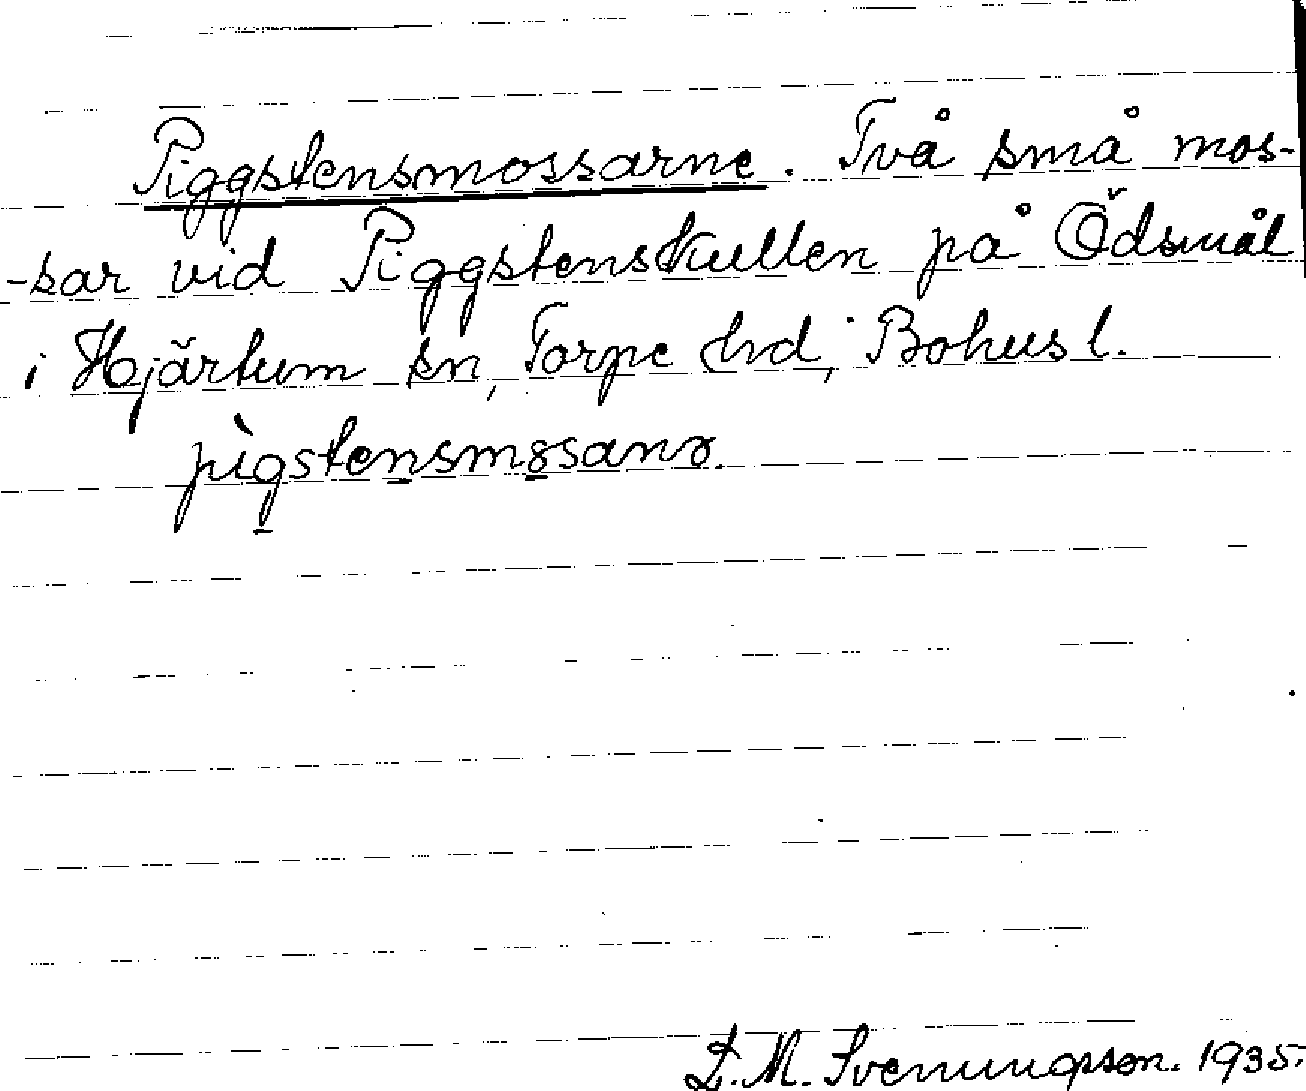 Piggstensmossarne. Två små mos-
-sar vid Piggstenskullen på Ödsmål
i Hjärtum sn, Torpe hd, Bohusl.
pìgstensmɞsanɞ.
L. M. Svenungsson. 1935.